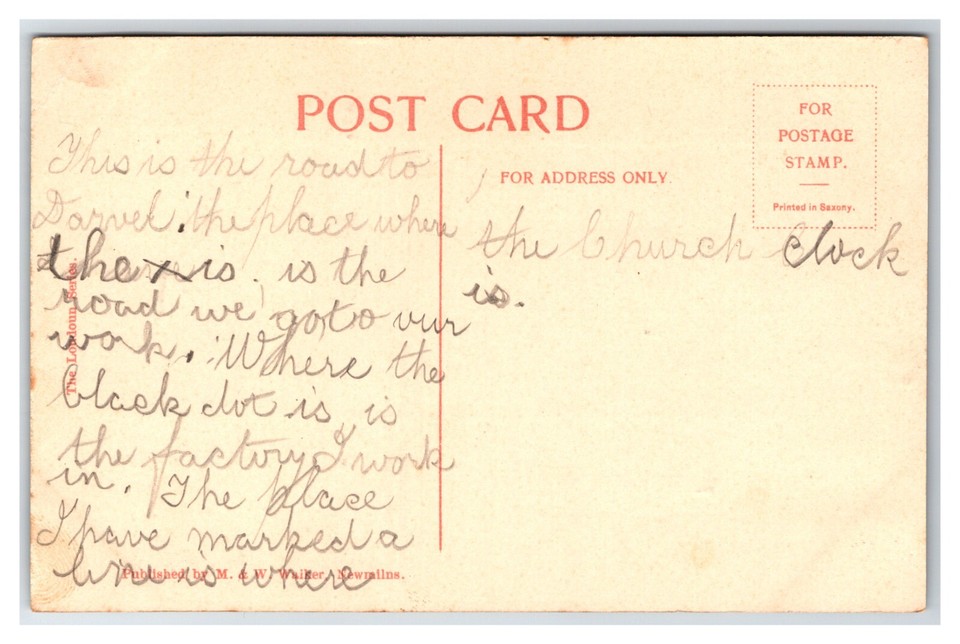 POST CARD
FOR
POSTAGE
STAMP.
Printed in Saxony.
FOR ADDRESS ONLY.
The Loudoun Series.
Published by M. & W. Walker, Newmilns.
This is the road to
Darvel. the place where
the x is. is the
road we go to our
work. Where the
black dot is, is
the factory I work
in. The place
I have marked a
line is where
the Church clock
is.